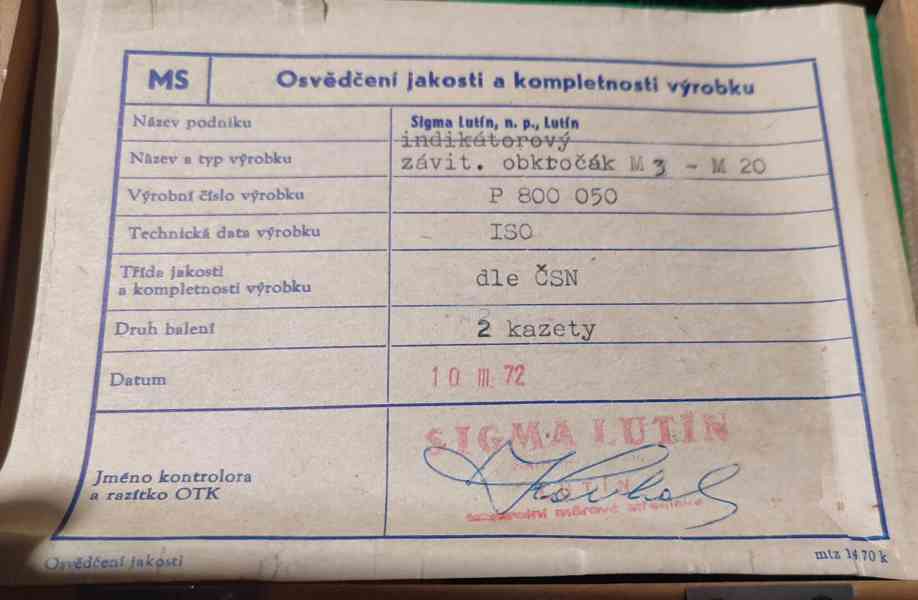 MS
Osvědčení jakosti a kompletnosti výrobku
Název podniku
Sigma Lutín, n. p., Lutín
Název a typ výrobku
indikátorový
závit. obkročák M 3 - M 20
Výrobní číslo výrobku
P 800 050
Technická data výrobku
ISO
Třída jakosti
a kompletnosti výrobku
dle ČSN
Druh balení
2 kazety
Datum
10 III. 72
Jméno kontrolora
a razítko OTK
SIGMA LUTÍN
měrové středisko
Osvědčení jakosti
mtz 14.70 k